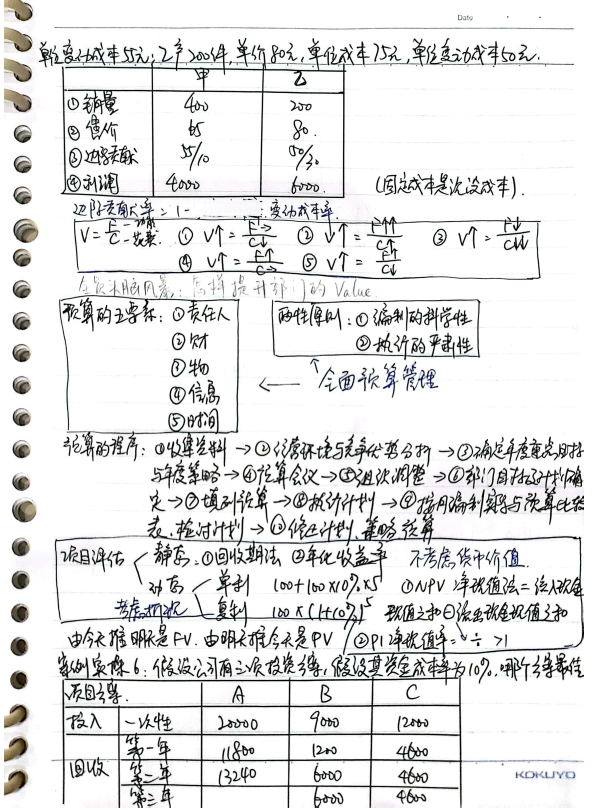 Date
单位变动成本55元；乙产200件，单价80元，单位成本75元，单位变动成本50元．
甲 乙
①销量 400 200
②售价 65 80.
③边际贡献 55/10 50/30
④利润 4000 6000. (固定成本是沉没成本).
边际贡献率=1- 变动成本率.
V=F/C - 功能/花费 ① V↑=F→/C↓ ② V↑=F↑↑/C↑ ③ V↑=F↓/C↓↓
④ V↑=F↑/C→ ⑤ V↑=F↑/C↓
全员头脑风暴：怎样提升部门的Value.
预算的五要素：①责任人
②财
③物
④信息
⑤时间
两性原则：①编制的科学性
②执行的严肃性
↑
← 全面预算管理
预算的程序：①收集资料→②经营环境与竞争优势分析→③确定年度重点目标
与年度策略→④预算会议→⑤组织调整→⑥部门目标及计划确
定→⑦填列预算→⑧执行计划→⑨按月编制实际与预算比较
表．检讨计划→⑩修正计划．策略．预算
项目评估 静态：①回收期法 ②年化收益率 不考虑货币价值.
动态 单利 100+100×10%×5 ①NPV 净现值法=流入现金
考虑折现 复利 100×(1+10%)^5 现值之和⊖流出现金现值之和
由今天推明天是FV．由明天推今天是PV ②PI 净现值率= ÷ >1
案例实操6：假设公司有三项投资方案，假设其资金成本率为10%．哪个方案最佳
项目方案. A B C
投入 一次性 20000 9000 12000
回收 第一年 11800 1200 4600
第二年 13240 6000 4600
第三年 6000 4600
KOKUYO